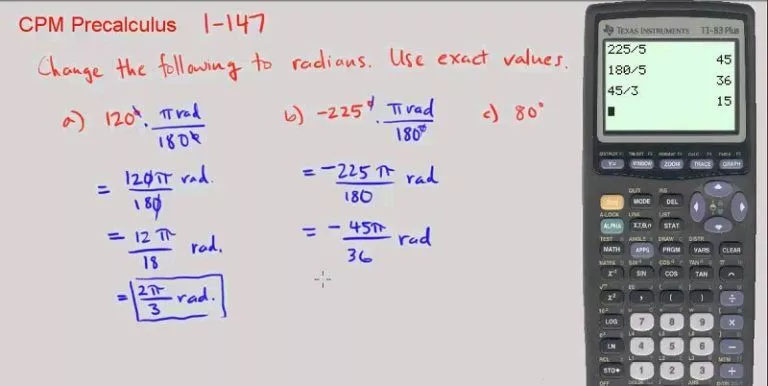 CPM Precalculus 1-147
Change the following to radians. Use exact values.
a) 120° · π rad / 180°
= 120π / 180 rad.
= 12π / 18 rad.
= 2π / 3 rad.
b) -225° · π rad / 180°
= -225π / 180 rad
= -45π / 36 rad
c) 80°
TEXAS INSTRUMENTS TI-83 Plus
225/5
45
180/5
36
45/3
15
Y= WINDOW ZOOM TRACE GRAPH
QUIT INS
MODE DEL
A-LOCK LINK LIST
ALPHA X,T,θ,n STAT
TEST ANGLE DRAW DISTR
MATH APPS PRGM VARS CLEAR
x⁻¹ SIN COS TAN ^
x² , ( ) ÷
LOG 7 8 9 ×
LN 4 5 6 −
RCL
STO▸ 1 2 3 +
OFF